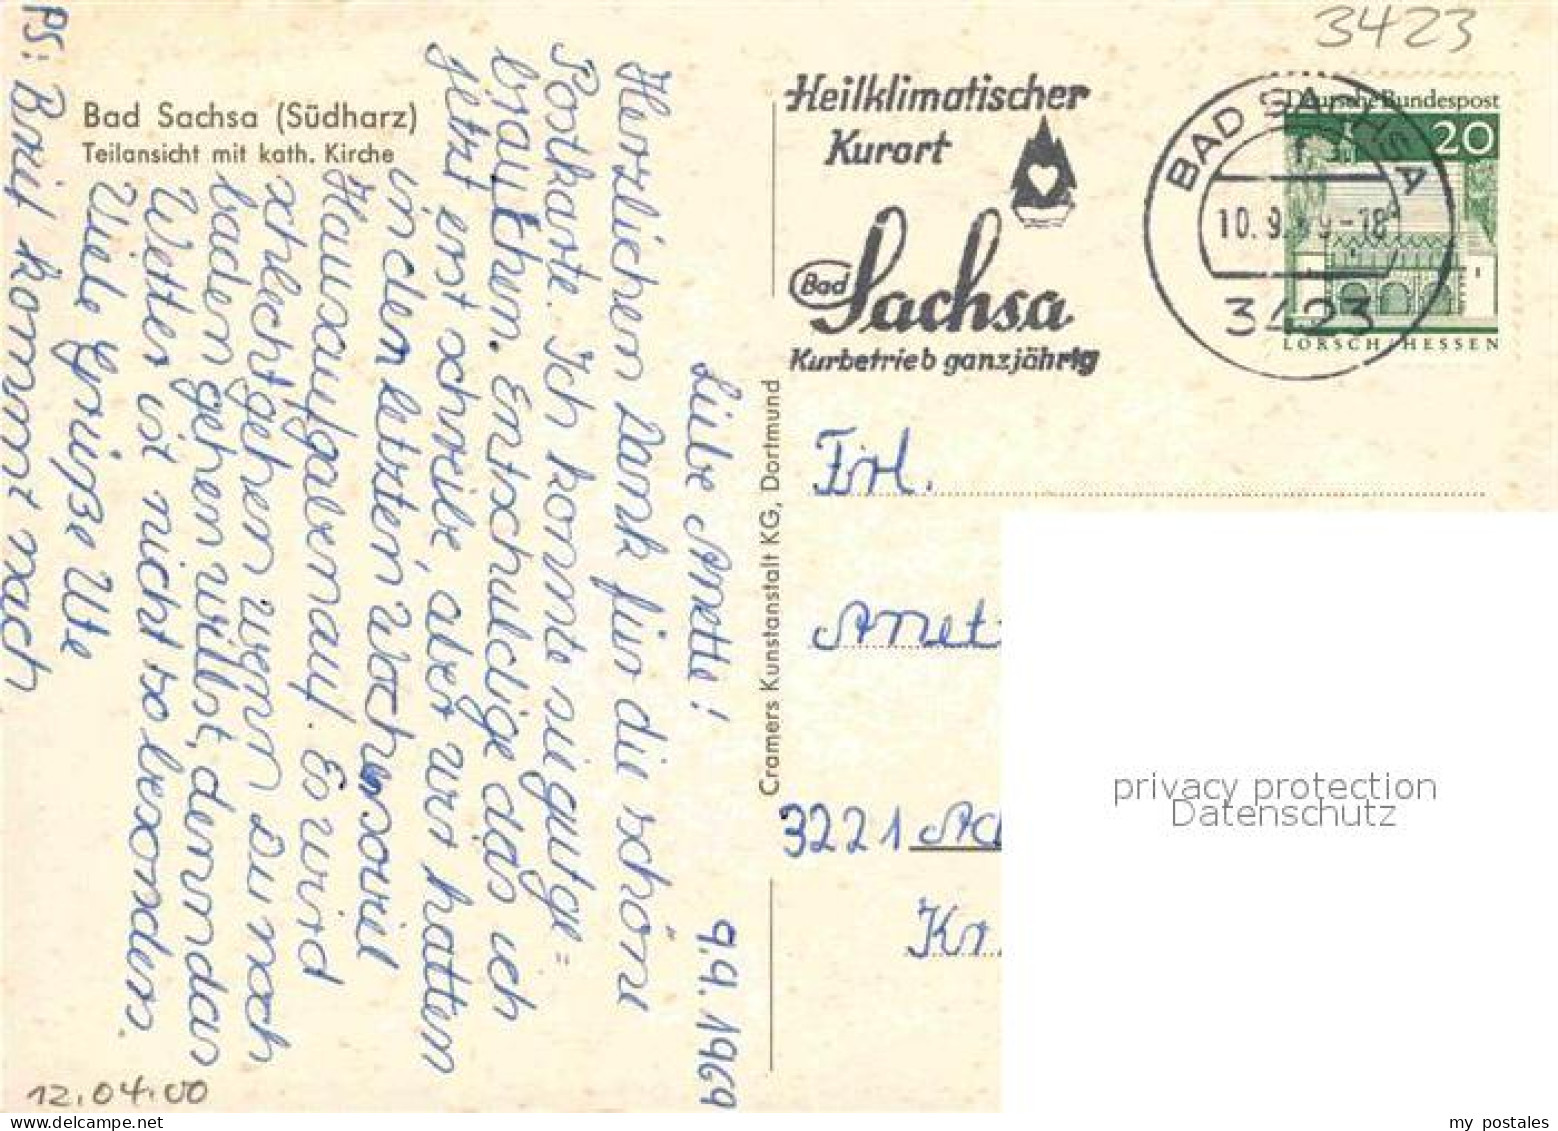 3423
Bad Sachsa (Südharz)
Teilansicht mit kath. Kirche
Heilklimatischer
Kurort
Bad
Sachsa
Kurbetrieb ganzjährig
BAD SACHSA
10. 9. 69-18
3423
Deutsche Bundespost
20
LORSCH/HESSEN
Cramers Kunstanstalt KG, Dortmund
9.9.1969
Liebe Anette!
Herzlichen Dank für die schöne
Postkarte. Ich konnte sie gutge=
brauchen. Entschuldige das ich
jetzt erst schreibe, aber wir hatten
in den letzten Wochen soviel
Hausaufgaben auf. Es wird
schlecht gehen wenn Du noch
baden gehen willst, denn das
Wetter ist nicht so besonders.
Viele Grüße Ute
PS: Brief kommt nach
12.04.00
Frl.
Anet
3221 
Kr.
privacy protection
Datenschutz
my postales